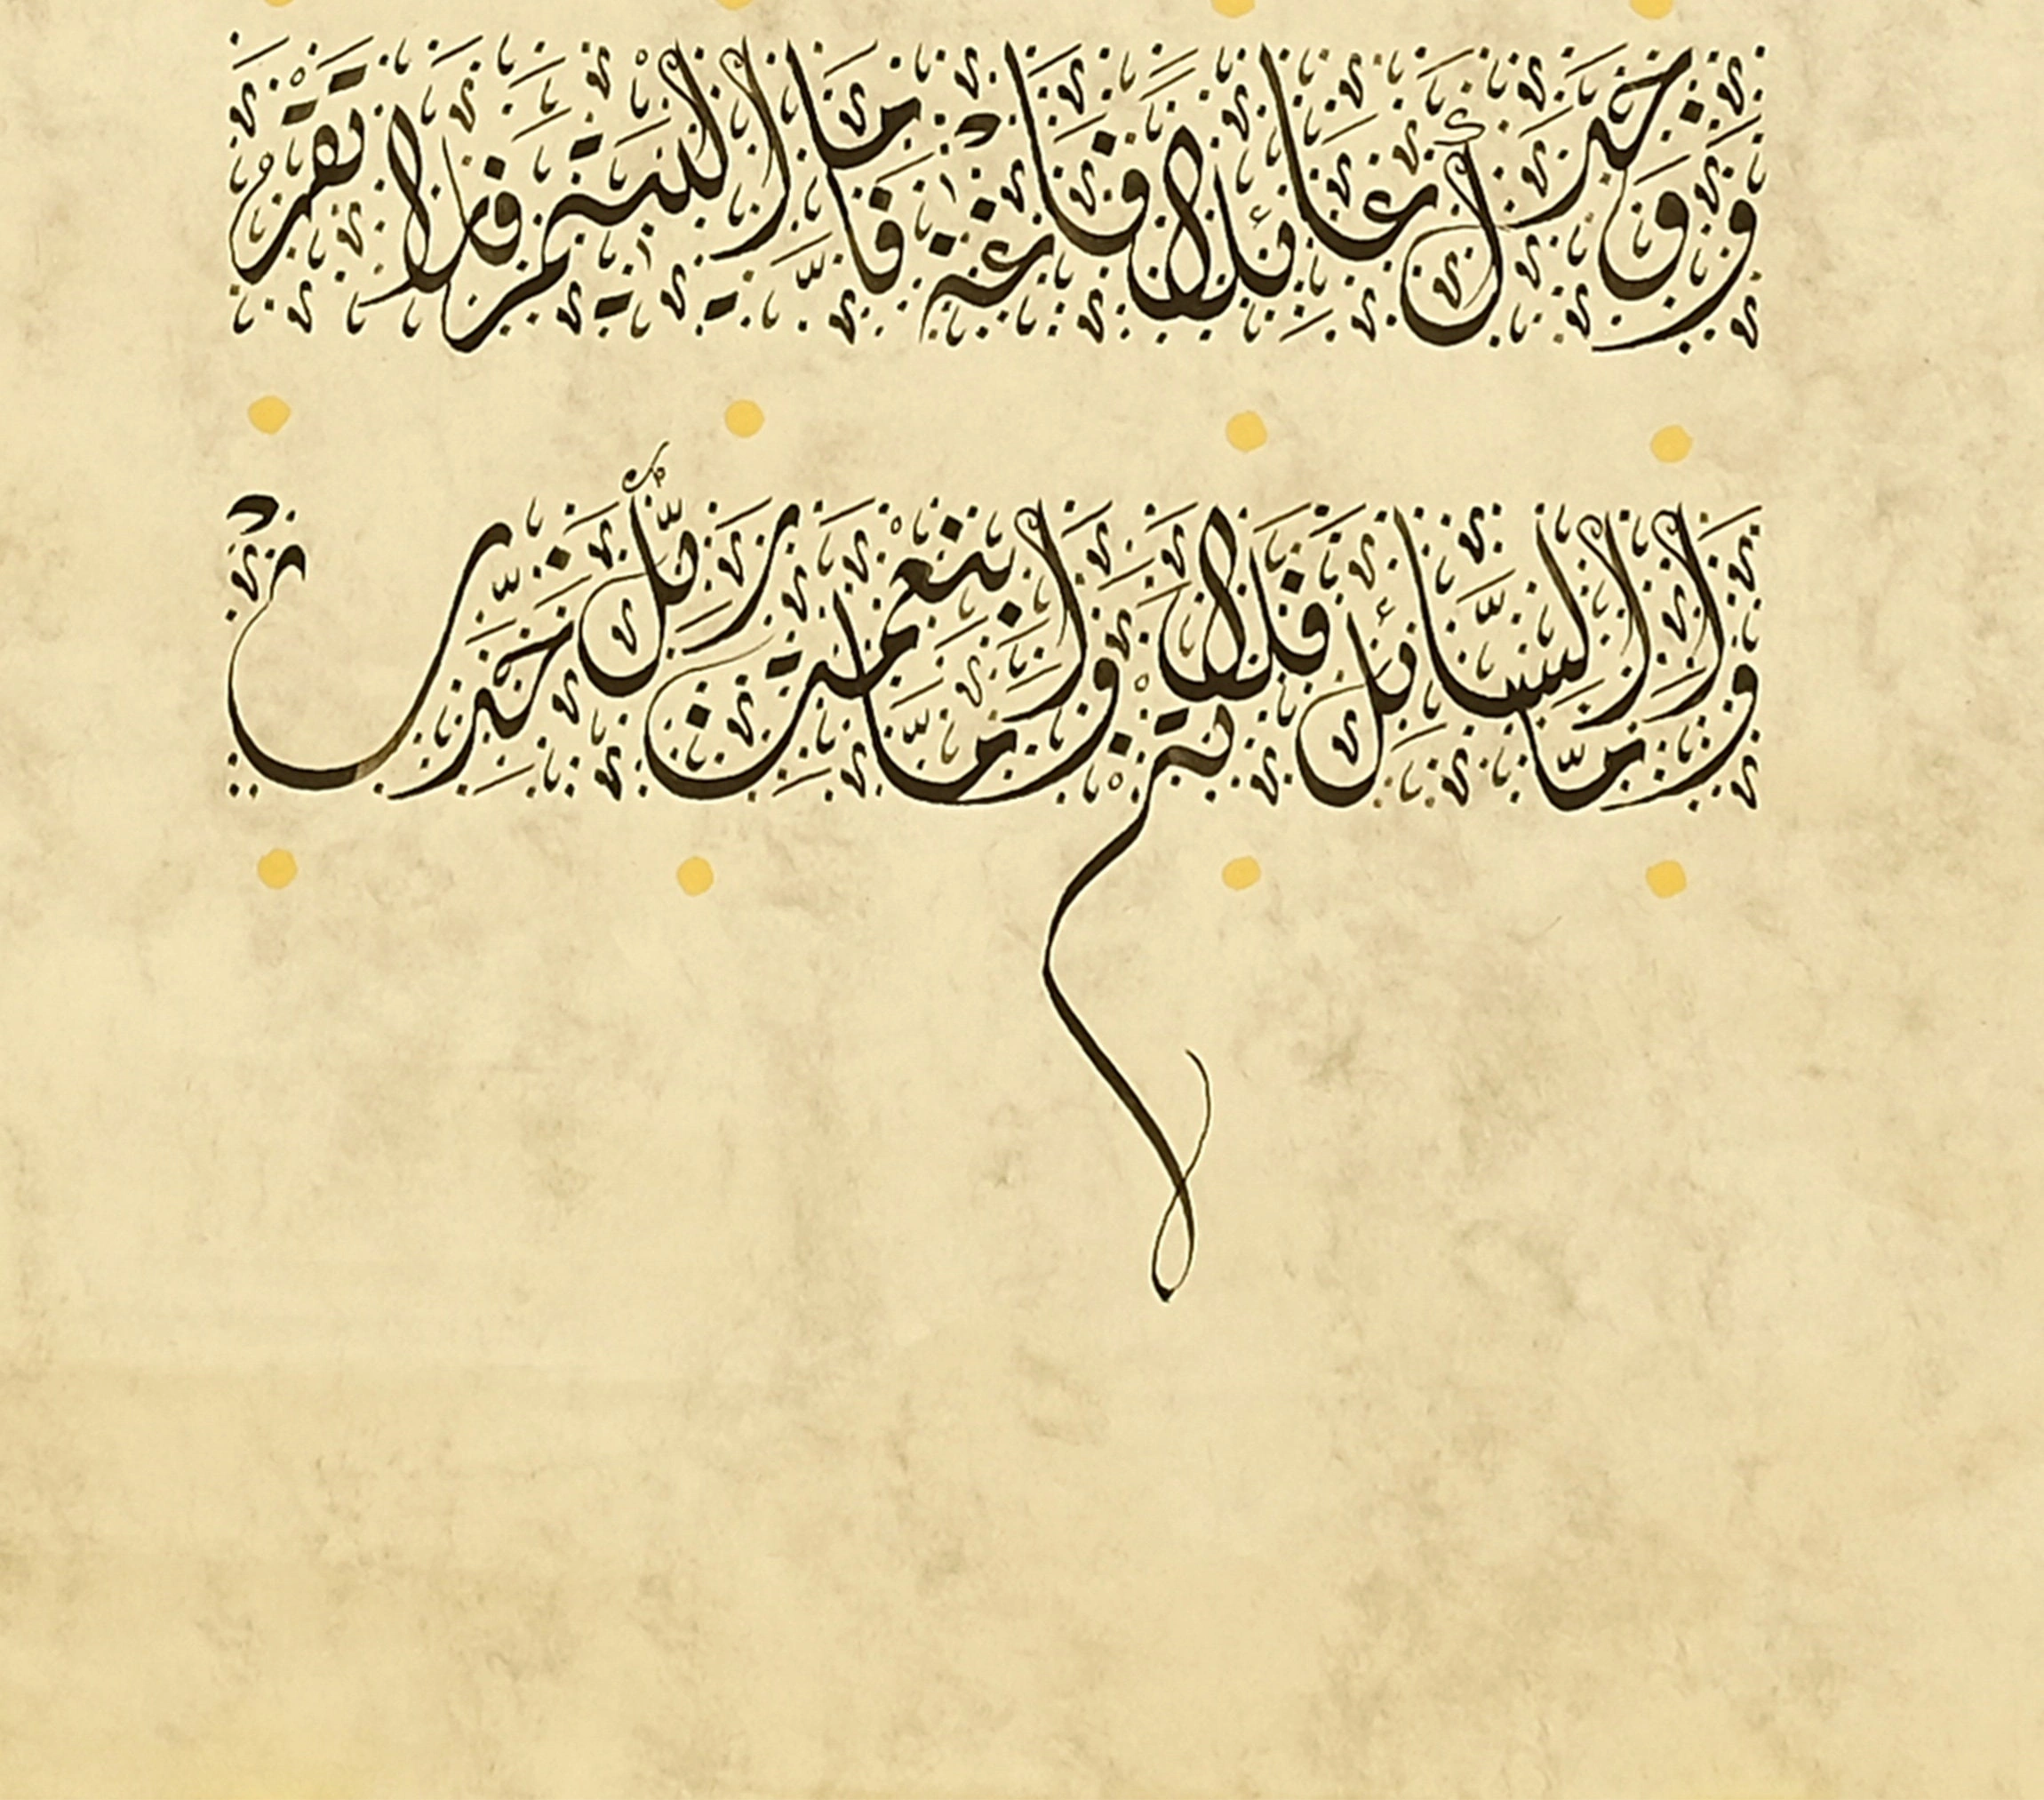 ووجدك عائلا فأغنى فأما اليتيم فلا تقهر
وأما السائل فلا تنهر وأما بنعمة ربك فحدث